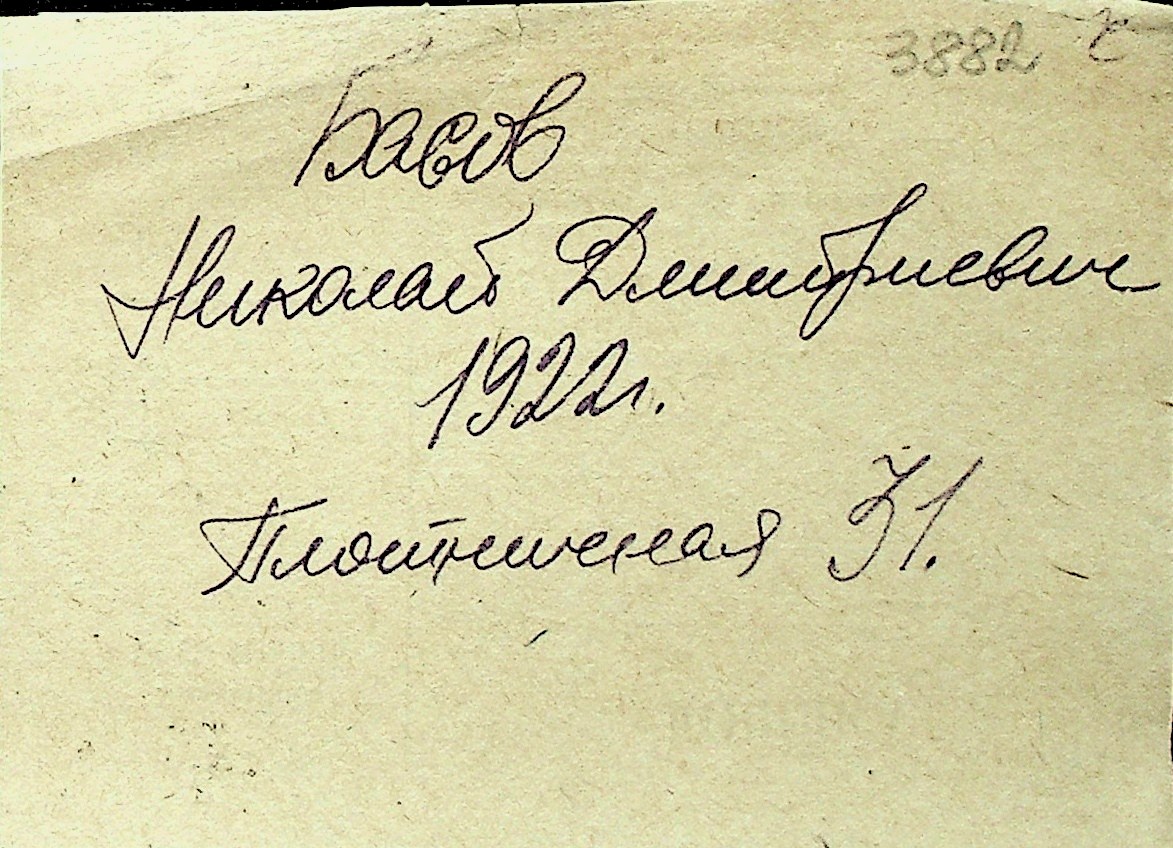 3882
Басов
Николай Дмитриевич
1922г.
Плотничная 31.